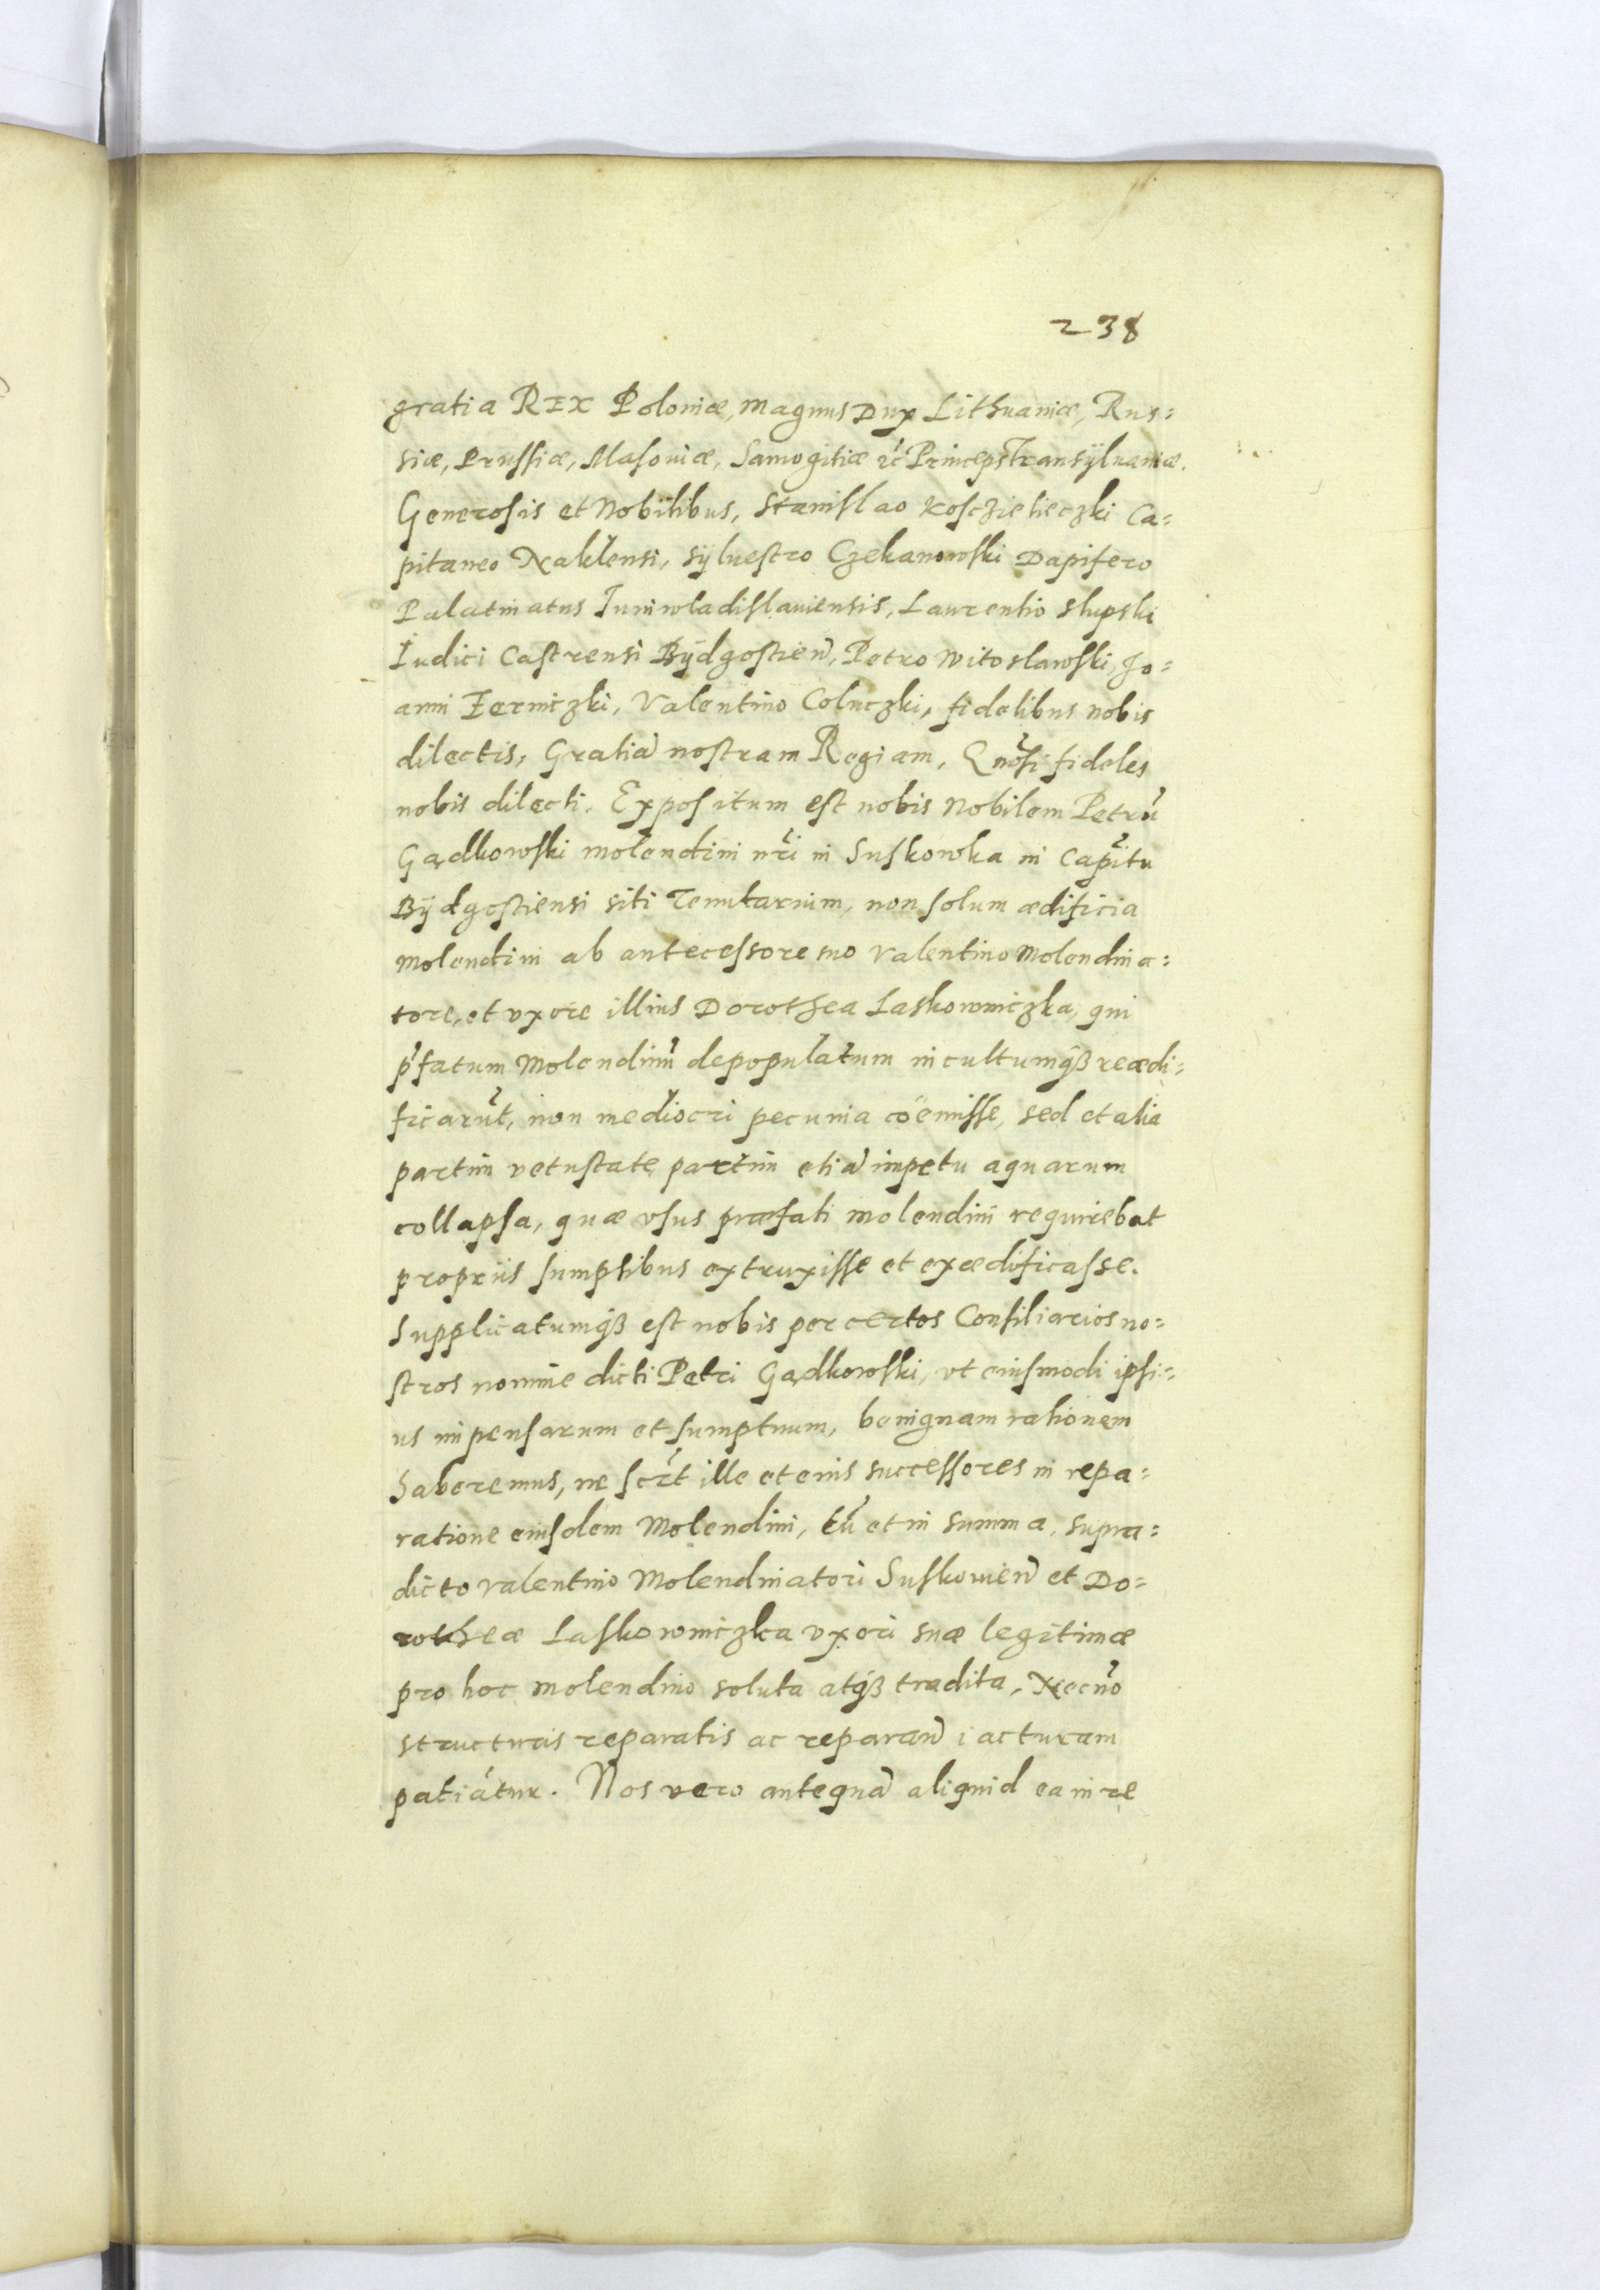 238
gratia REX Poloniæ, Magnus Dux Lithuaniæ, Rus=
siæ, Prussiæ, Masouiæ, Samogitiæ ꝛc̃ Princeps Transÿluaniæ.
Generosis et Nobilibus, Stanislao Kosczielieczki Ca=
pitaneo Naklensi, Sÿluestro Czekanowski Dapifero
Palatinatus Iuniwladislauiensis, Laurentio Slupski
Iudici Castrensi Bÿdgostien̄, Petro Witoslawski, Jo=
anni Zerniczki, Valentino Coluczki, fidelibus nobis
dilectis, Gratiā nostram Regiam, Gn̄osi fideles
nobis dilecti. Expositum est nobis Nobilem Petrū
Gądkowski molendini nr̃i in Suskowka in Capĩtu
Bÿdgostiensi siti Tenutarium, non solum ædificia
Molendini ab antecessore suo Valentino Molendina=
tore, et vxore illius Dorothea Laskowniczka, qui
p̃fatum Molendinū depopulatum incultumqꝫ reædi=
ficarūt, non mediocri pecunia coëmisse, sed et alia
partim vetustate partim etiā impetu aquarum
collapsa, quæ vsus præfati molendini requirebat
proprijs sumptibus extruxisse et exædificasse.
Supplicatumqꝫ est nobis per certos Consiliarios no=
stros nomine dicti Petri Gądkowski, vt eiusmodi ipsi=
us impensarum et sumptuum, benignam rationem
haberemus, ne scr̃t ille et eius successores in repa=
ratione eiusdem Molendini, tū et in summa, supra=
dicto Valentino Molendinatori Suskouien̄ et Do=
rotheæ Laskowniczka vxori suæ legitimæ
pro hoc molendino soluta atqꝫ tradita, Necnō
structuris reparatis ac reparan̄ iacturam
patiātur. Nos vero antequā aliquid ea in re